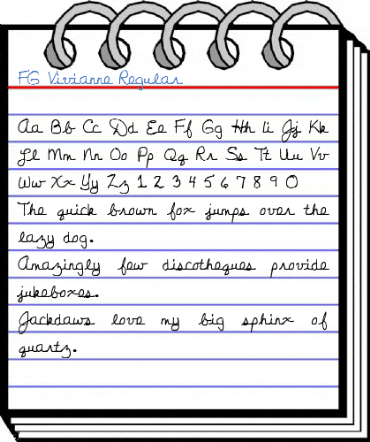 FG Vivianne Regular
Aa Bb Cc Dd Ee Ff Gg Hh Ii Jj Kk
Ll Mm Nn Oo Pp Qq Rr Ss Tt Uu Vv
Ww Xx Yy Zz 1 2 3 4 5 6 7 8 9 0
The quick brown fox jumps over the
lazy dog.
Amazingly few discotheques provide
jukeboxes.
Jackdaws love my big sphinx of
quartz.